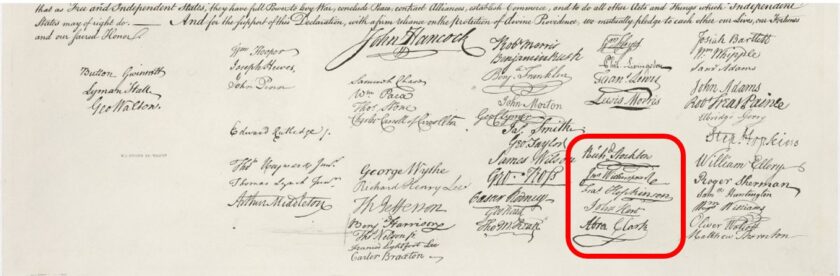 that as Free and Independent States, they have full Power to levy War, conclude Peace, contract Alliances, establish Commerce, and to do all other Acts and Things which Independent
States may of right do. And for the support of this Declaration, with a firm reliance on the protection of divine Providence, we mutually pledge to each other our Lives, our Fortunes
and our sacred Honor.
Button Gwinnett
Lyman Hall
Geo Walton.
Wm Hooper
Joseph Hewes,
John Penn
Edward Rutledge /.
Thos Heyward Junr.
Thomas Lynch Junr.
Arthur Middleton
John Hancock
Samuel Chase
Wm Paca
Thos Stone
Charles Carroll of Carrollton
George Wythe
Richard Henry Lee
Th Jefferson
Benj Harrison
Thos Nelson jr.
Francis Lightfoot Lee
Carter Braxton
Robt Morris
Benjamin Rush
Benj. Franklin
John Morton
Geo Clymer
Jas. Smith
Geo. Taylor
James Wilson
Geo. Ross
Caesar Rodney
Geo Read
Tho M:Kean
Wm Floyd
Phil. Livingston
Frans. Lewis
Lewis Morris
Richd. Stockton
Jno Witherspoon
Fras. Hopkinson
John Hart
Abra Clark
Josiah Bartlett
Wm. Whipple
Saml Adams
John Adams
Robt Treat Paine
Elbridge Gerry
Step. Hopkins
William Ellery
Roger Sherman
Sam el Huntington
Wm. Williams
Oliver Wolcott
Matthew Thornton